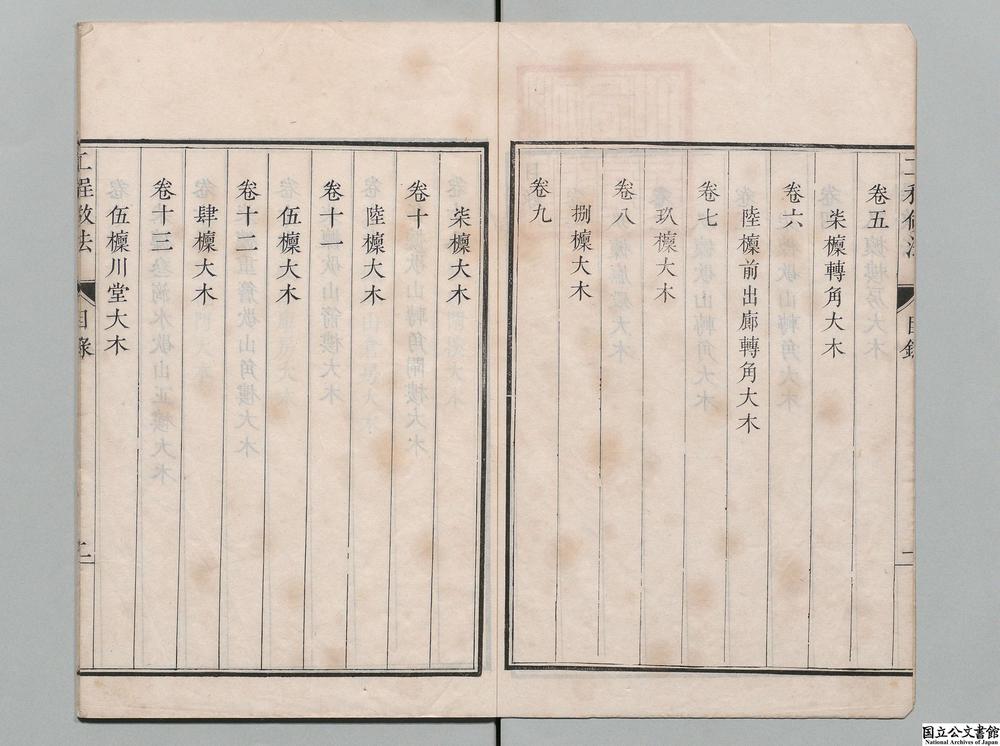 卷五
柒檁轉角大木
卷六
陸檁前出廊轉角大木
卷七
玖檁大木
卷八
捌檁大木
卷九
柒檁大木
卷十
陸檁大木
卷十一
伍檁大木
卷十二
肆檁大木
卷十三
伍檁川堂大木
工程做法
目錄
二
国立公文書館
National Archives of Japan